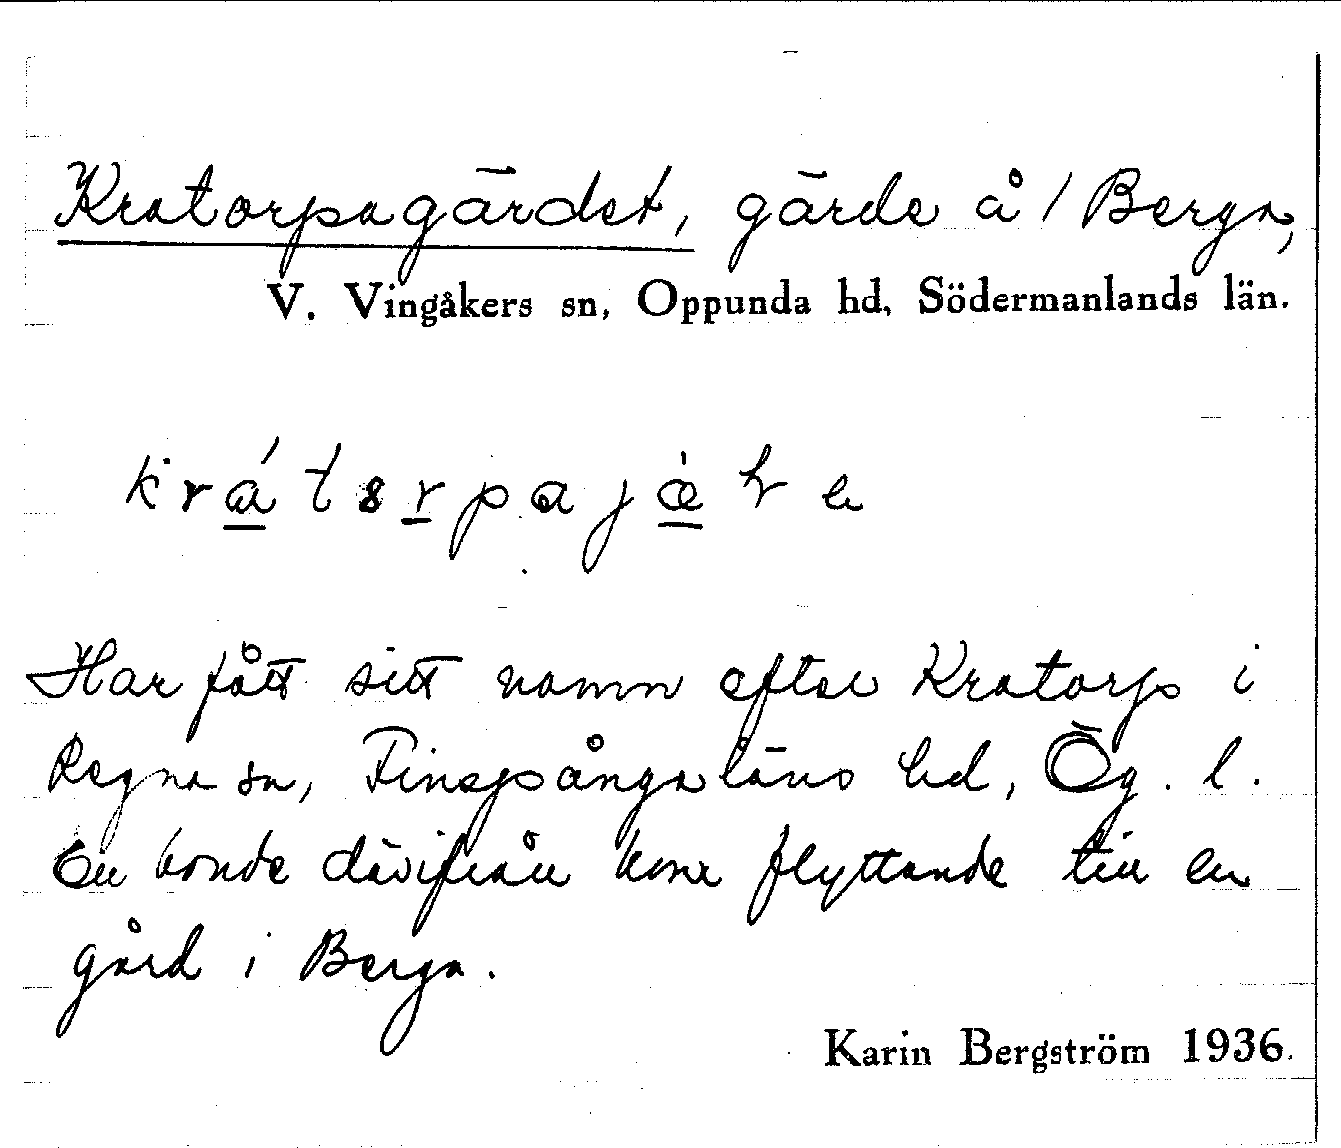 Kratorpagärdet, gärde å 1 Berga,
V. Vingåkers sn, Oppunda hd, Södermanlands län.
Har fått sitt namn efter Kratorp i
Regna sn, Finspånga läns hd, Ög. l.
En bonde därifrån kom flyttande till en
gård i Berga.
Karin Bergström 1936.